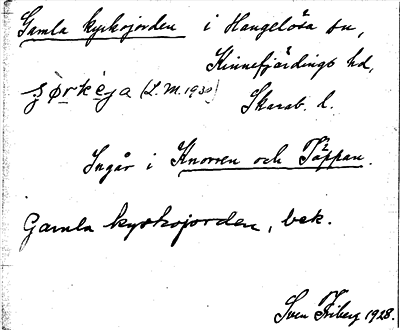 Gamla kyrkojorden i Hangelösa sn,
Kinnefjärdings hd,
(L. M. 1930)
Skarab. l.
Ingår i Knorren och Täppan.
Gamla kyrkojorden, bek.
Sven Friberg 1928.